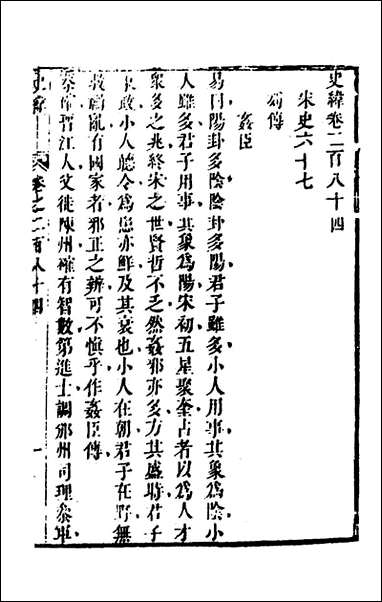 史緯卷二百八十四
宋史六十七
列傳
姦臣
易曰陽卦多陰陰卦多陽君子雖多小人用事其象爲陰小
人雖多君子用事其象爲陽宋初五星聚奎占者以爲人才
衆多之兆終宋之世賢哲不乏然姦邪亦多方其盛時君子
秉政小人聽令爲患亦鮮及其衰也小人在朝君子在野無
救禍亂有國家者邪正之辨可不愼乎作姦臣傳
蔡確晉江人父徙陳州確有智數第進士調邠州司理叅軍
史緯 卷之二百八十四 一